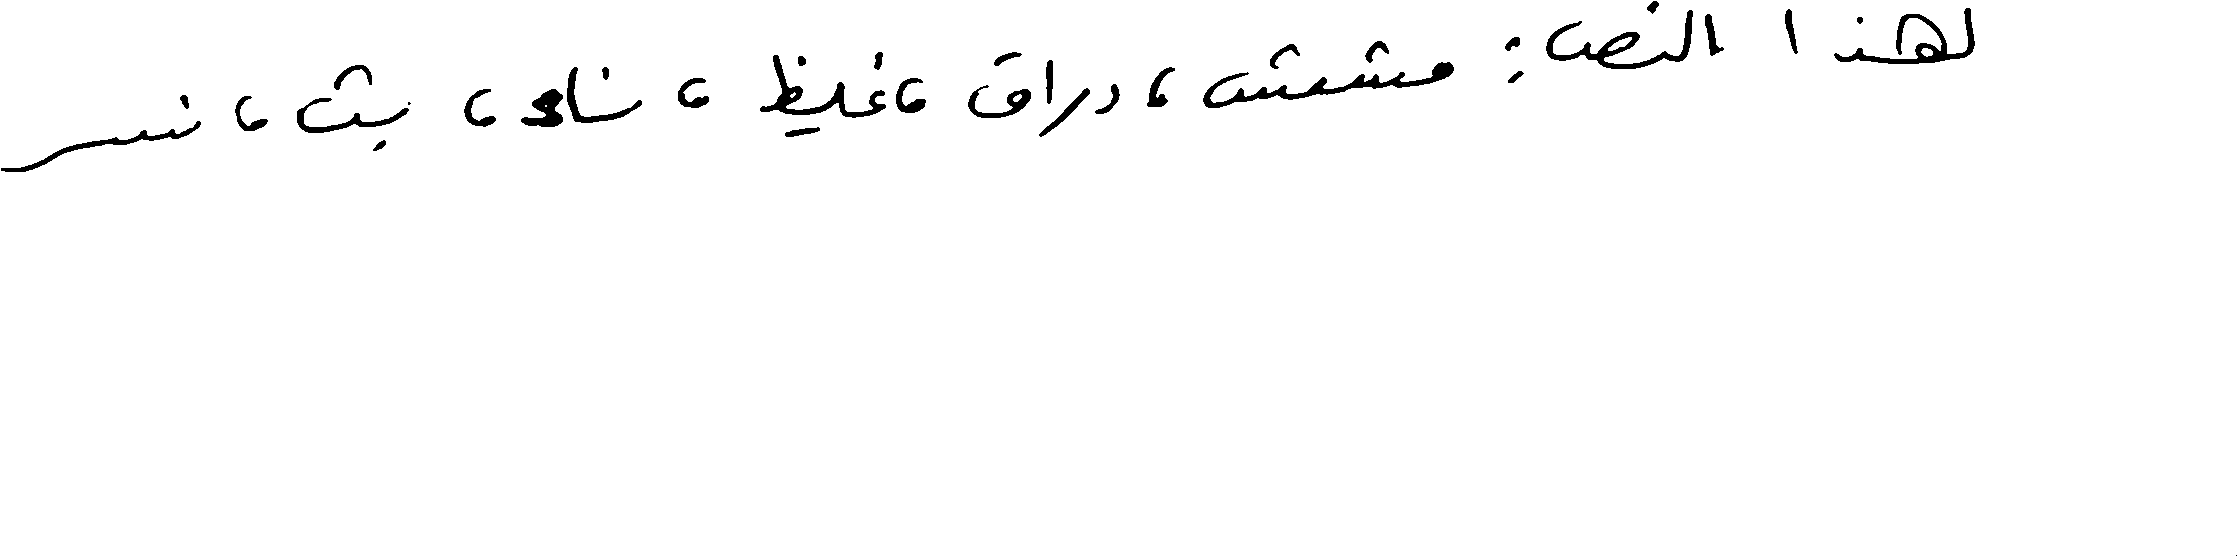 لهذا النص: مشتت، دراق، غليظ، شاد، بث، نسر